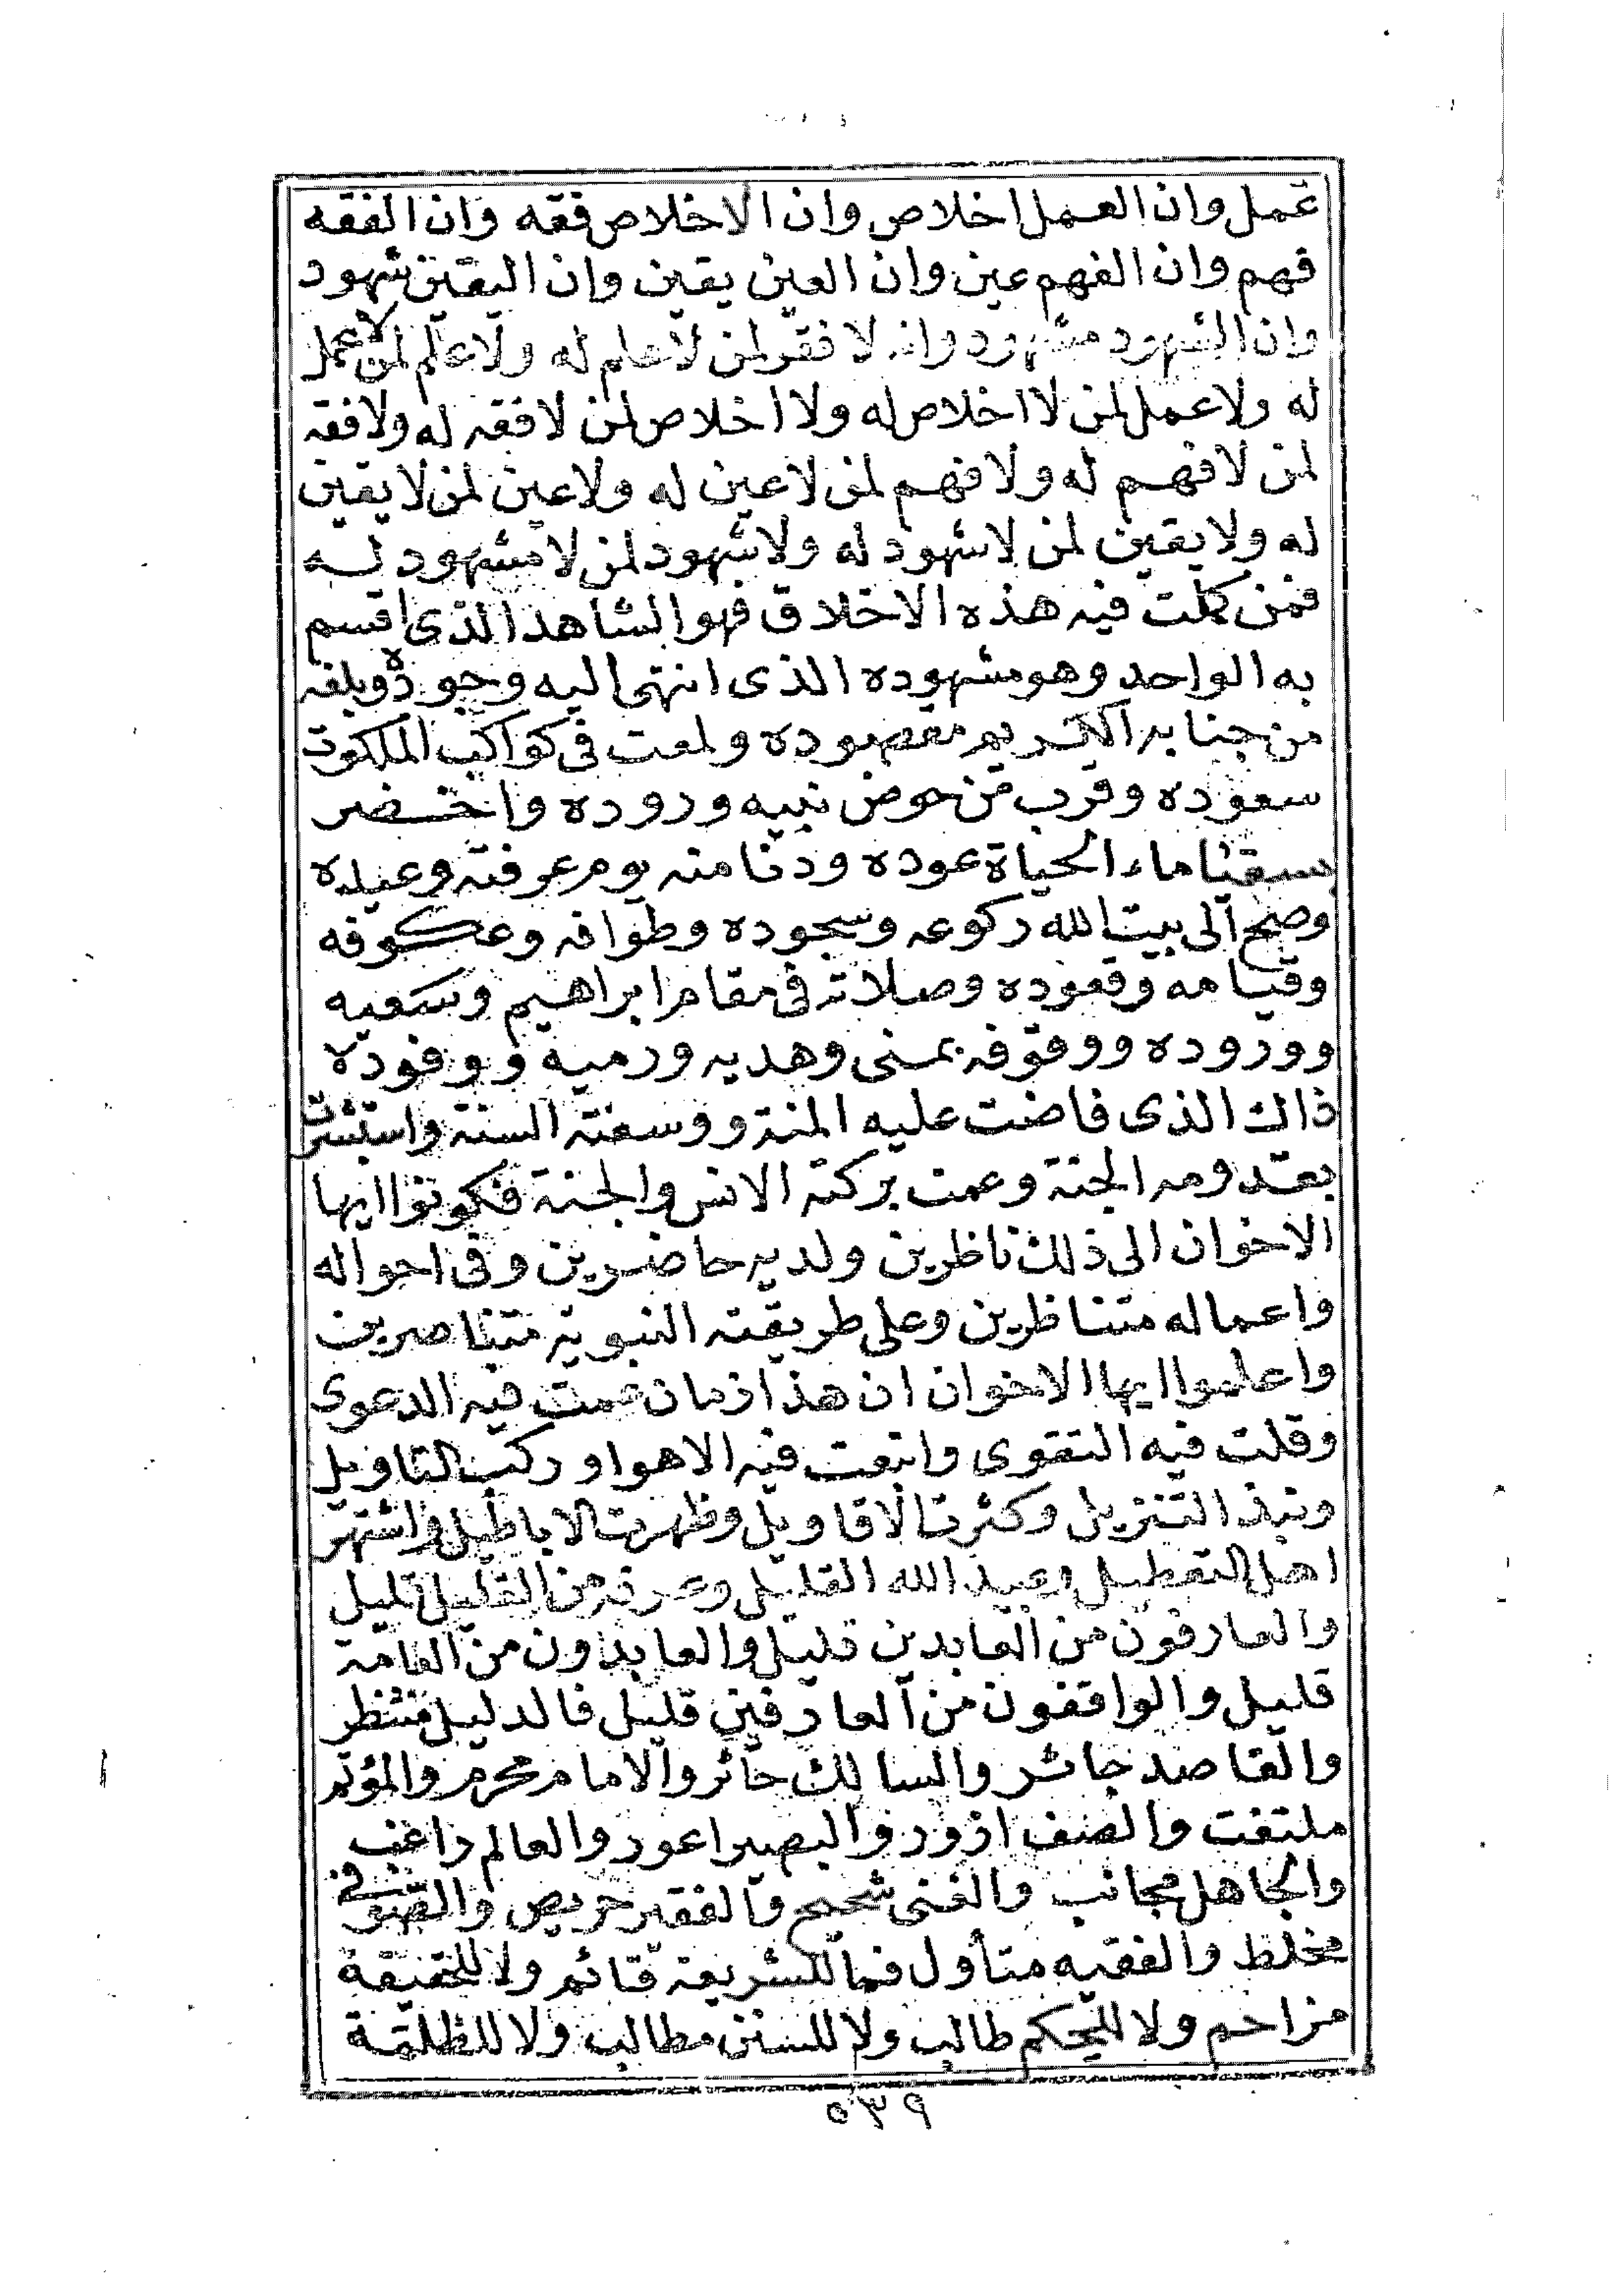 عمل وان العمل اخلاص وان الاخلاص فقه وان الفقه
فهم وان الفهم عين وان العين يقين وان اليقين شهود
وان الشهود مشهود وانه لا فقر لمن لا علم له ولا علم لمن لا عمل
له ولا عمل لمن لا اخلاص له ولا اخلاص لمن لا فقه له ولا فقه
لمن لا فهم له ولا فهم لمن لا عين له ولا عين لمن لا يقين
له ولا يقين لمن لا شهود له ولا شهود لمن لا مشهود له
فمن كملت فيه هذه الاخلاق فهو الشاهد الذى اقسم
به الواحد وهو مشهوده الذى انتهى اليه وجوده وبلغه
من جنابه الكريم مقصوده ولمعت فى كواكب الملكوت
سعوده وقرب من حوض نبيه وروده واخضر
بسقيا ماء الحياة عوده ودنا منه يوم عرفته وعيده
وصح الى بيت الله ركوعه وسجوده وطوافه وعكوفه
وقيامه وقعوده وصلاته فى مقام ابراهيم وسعيه
ووروده ووقوفه بمنى وهديه ورميه ووفوده
ذاك الذى فاضت عليه المنة ووسعته السنة واستبشرت
بقدومه الجنة وعمت بركته الانس والجنة فكونوا ايها
الاخوان الى ذلك ناظرين ولديه حاضرين وفى احواله
واعماله متناظرين وعلى طريقته النبوية متناصرين
واعلموا ايها الاخوان ان هذا زمان عمت فيه الدعوى
وقلت فيه التقوى واتبعت فيه الاهوا وركب التاويل
ونبذ التنزيل وكثرت الاقاويل وظهرت الاباطيل واشتهر
اهل التعطيل وعبد الله القليل وعرفه من القليل قليل
والعارفون من العابدين قليل والعابدون من العامة
قليل والواقفون من العارفين قليل فالدليل منتظر
والقاصد جائر والسالك حائر والامام محرم والمؤتم
ملتفت والصف ازور والبصير اعور والعالم راغب
والجاهل مجانب والغنى شحيح والفقير حريص والصوفى
مخلط والفقيه متأول فما للشريعة قائم ولا للحقيقة
مزاحم ولا للحكم طالب ولا للسنن مطالب ولا للظلمة
٥٣٩